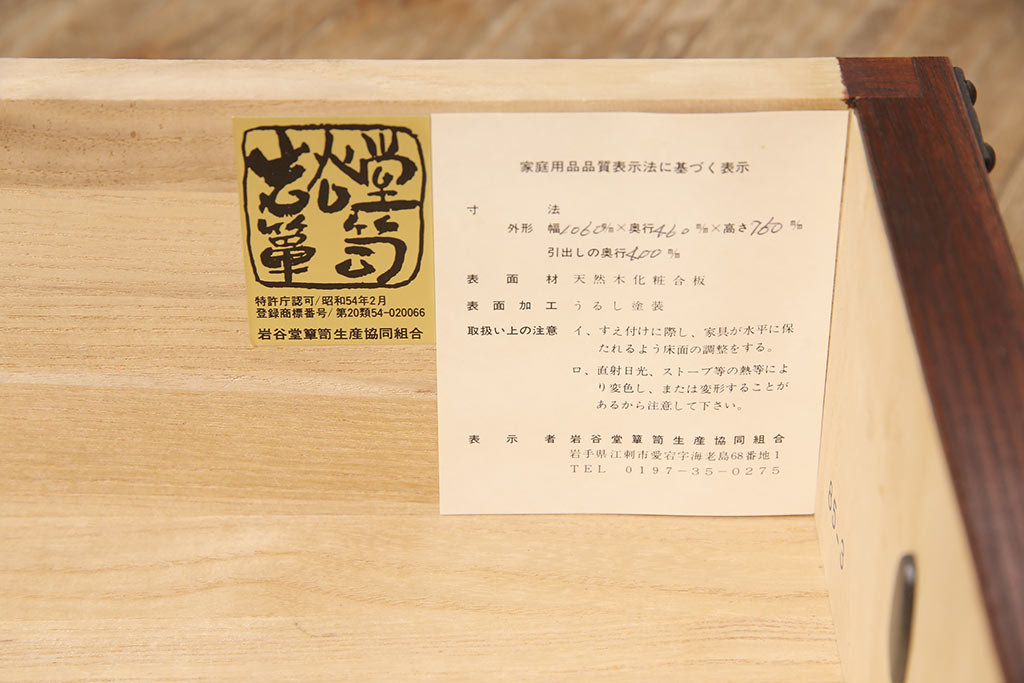 岩谷堂
簞笥
特許庁認可/昭和54年2月
登録商標番号/第20類54-020066
岩谷堂簞笥生産協同組合
家庭用品品質表示法に基づく表示
寸法
外形 幅1060㎜×奥行460㎜×高さ760㎜
引出しの奥行400㎜
表面材 天然木化粧合板
表面加工 うるし塗装
取扱い上の注意 イ、すえ付けに際し、家具が水平に保
たれるよう床面の調整をする。
ロ、直射日光、ストーブ等の熱等によ
り変色し、または変形することが
あるから注意して下さい。
表示者 岩谷堂簞笥生産協同組合
岩手県江刺市愛宕字海老島68番地1
TEL 0197-35-0275
85-3